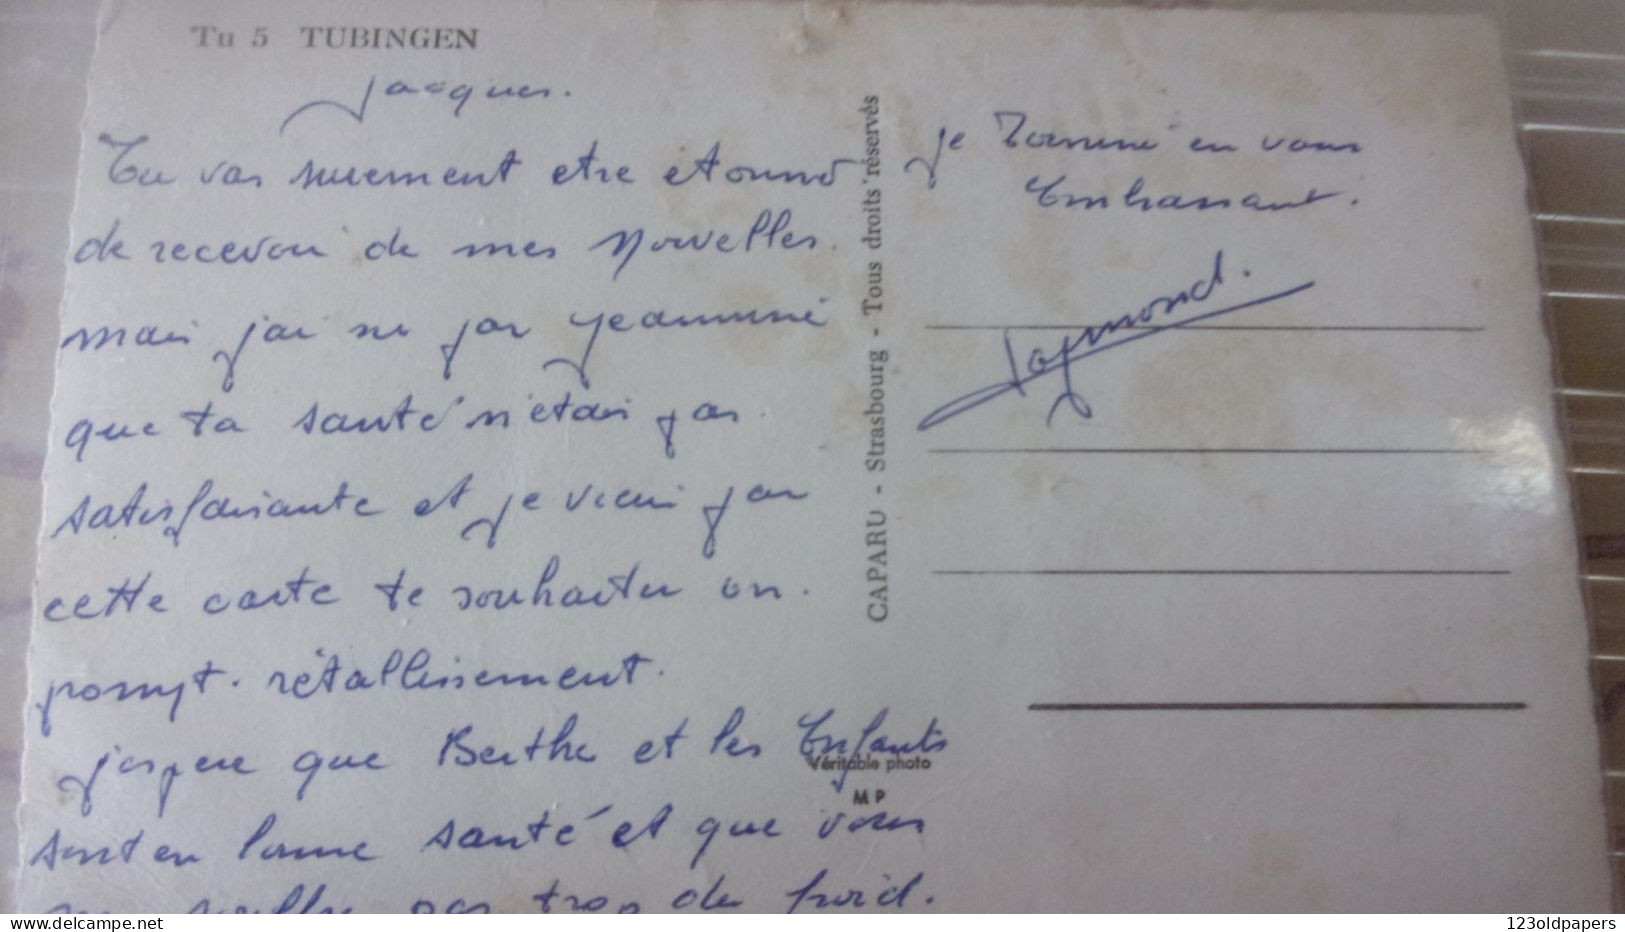 Tu 5 TUBINGEN
Jacques.
Tu vas surement etre etonné
de recevoir de mes Nouvelles.
mais j'ai su par Jeannine
que ta santé n'etais pas
satisfaisante et je viens par
cette carte te souhaiter un
prompt rétablissement.
j'espere que Berthe et les Enfants
sont en bonne santé et que vous
ne souffre pas trop du froid.
CAPARU - Strasbourg - Tous droits réservés
Véritable photo
M P
je Termine en vous
Embrassant.
Raymond.
123oldpapers